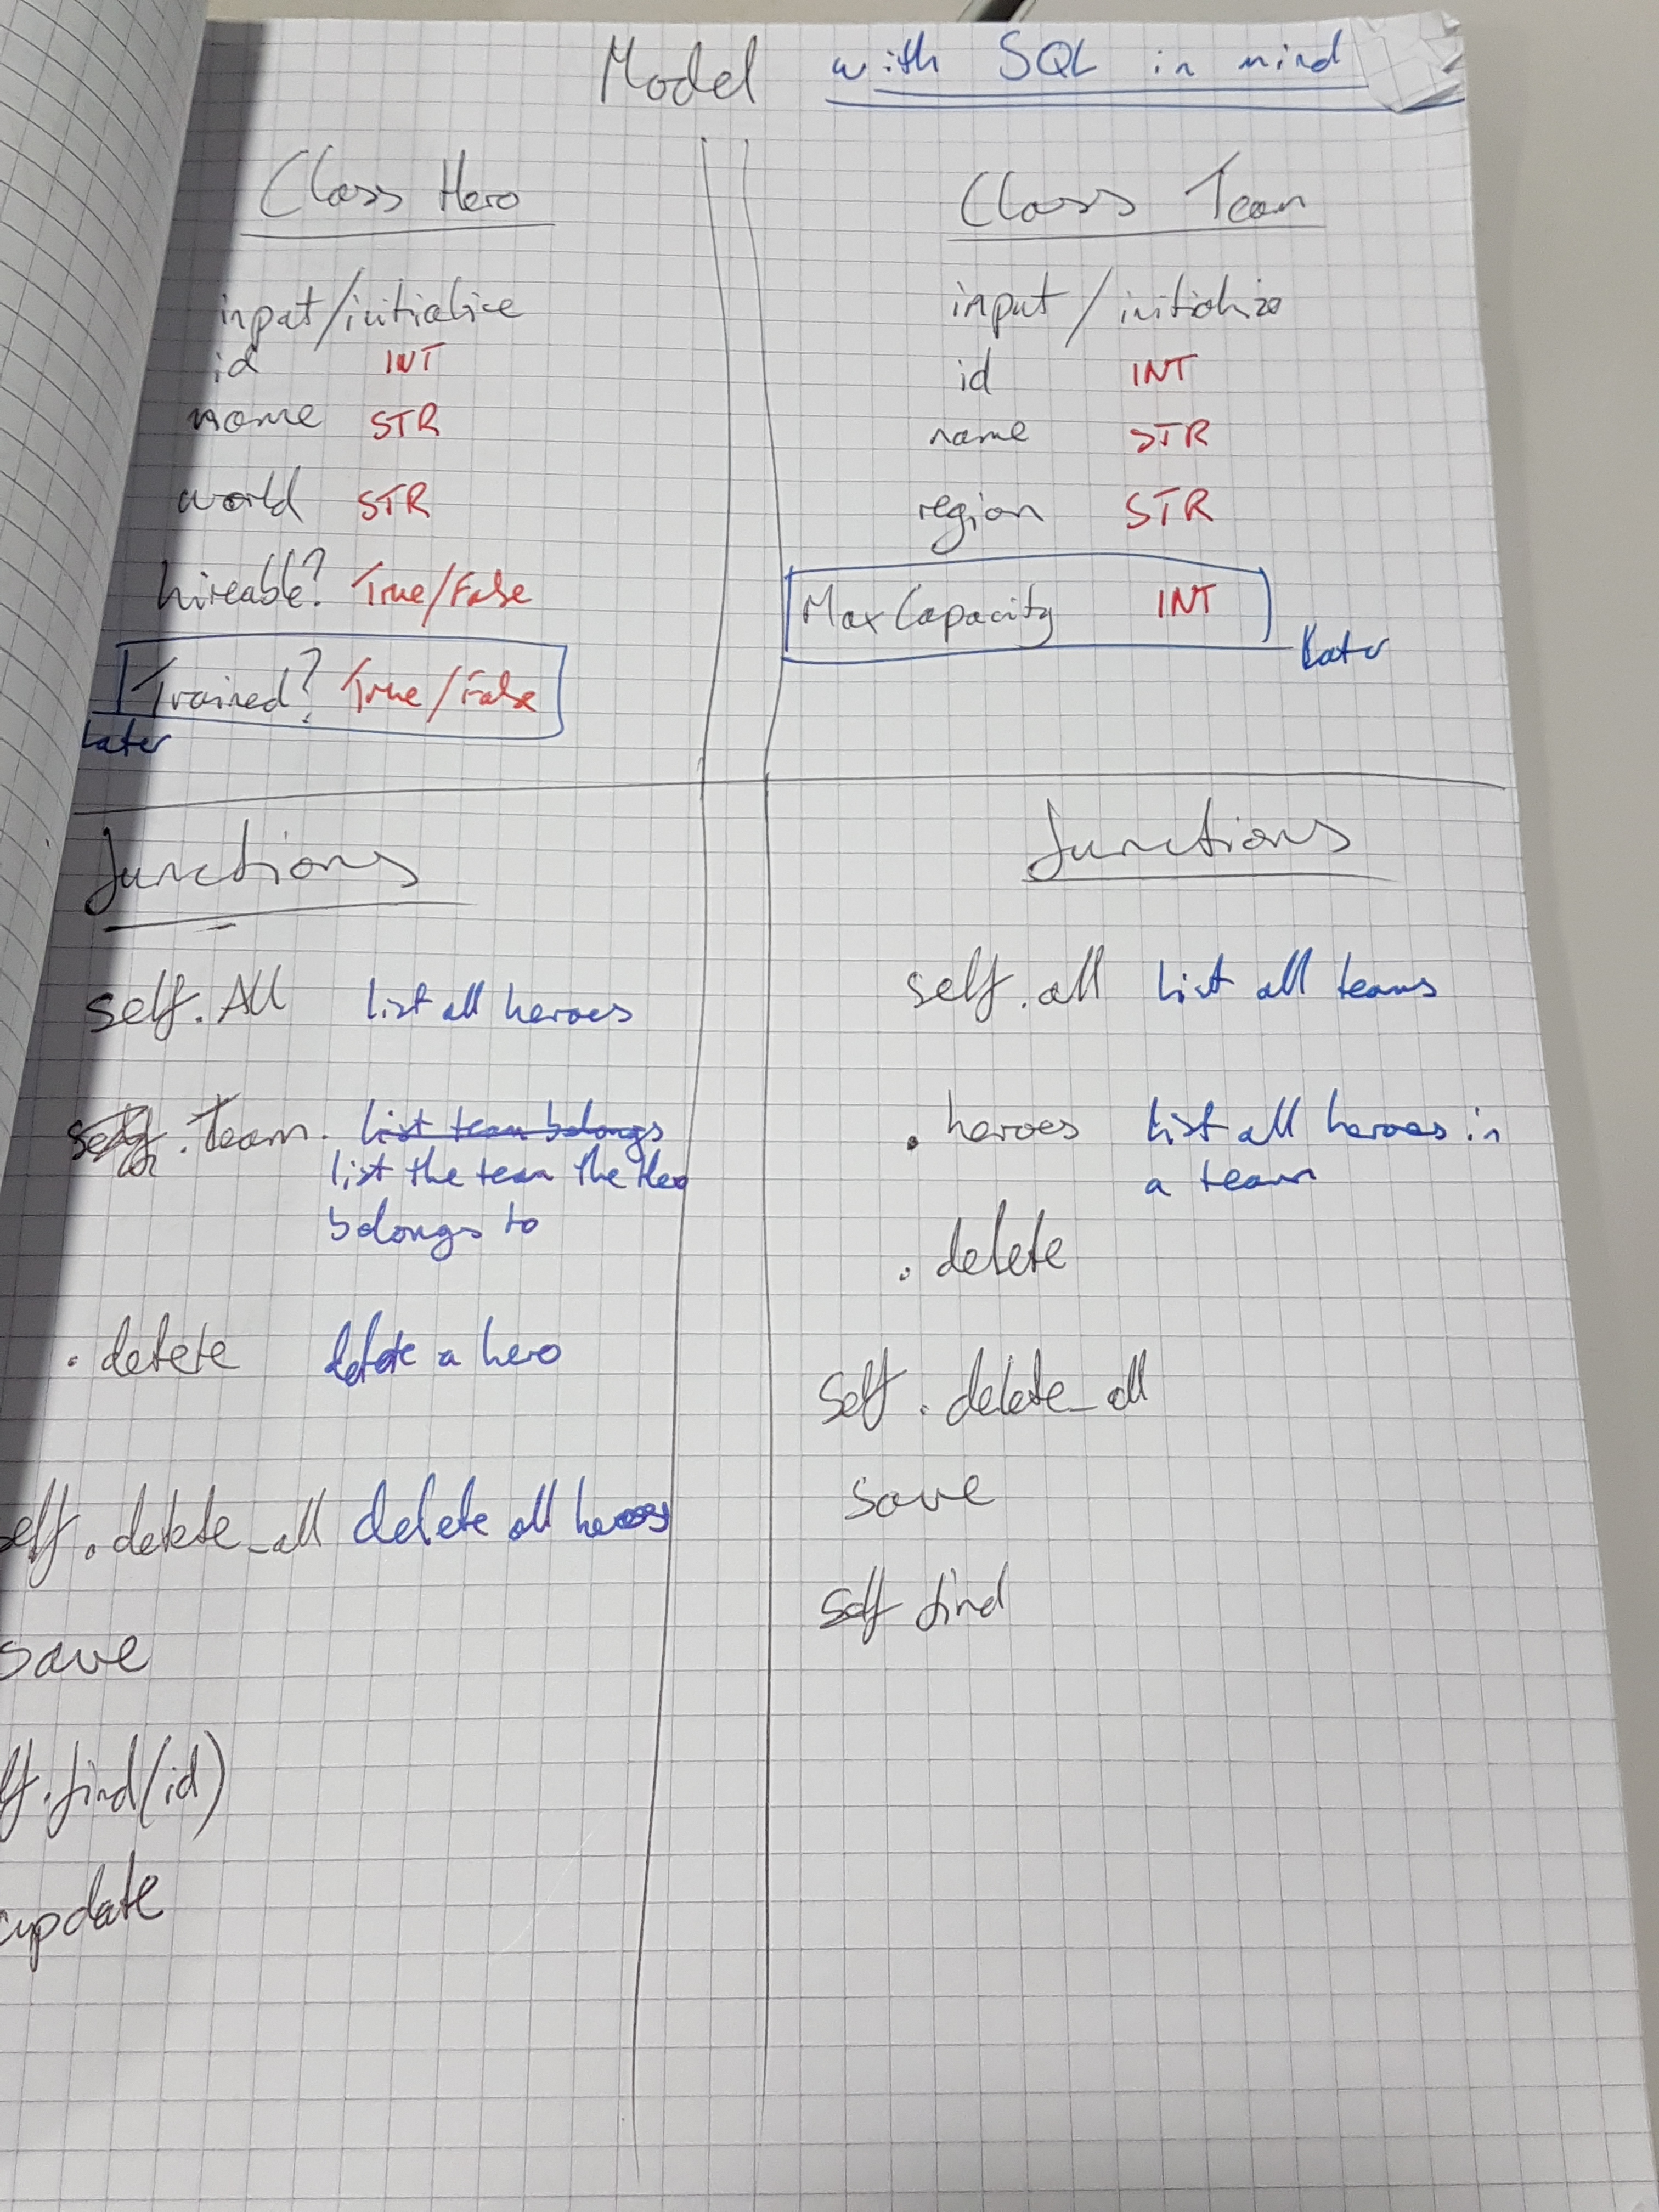 Model with SQL in mind
Class Hero
input/initialize
id INT
name STR
world STR
hireable? True/False
Trained? True/False
Later
functions
self.All list all heroes
.Team. list team belongs
list the team the Hero
belongs to
. delete delete a hero
self.delete_all delete all heroes
save
lf.find(id)
update
Class Team
input/initialize
id INT
name STR
region STR
Max Capacity INT
Later
functions
self.all list all teams
. heroes list all heroes in
a team
. delete
Self.delete_all
save
self find